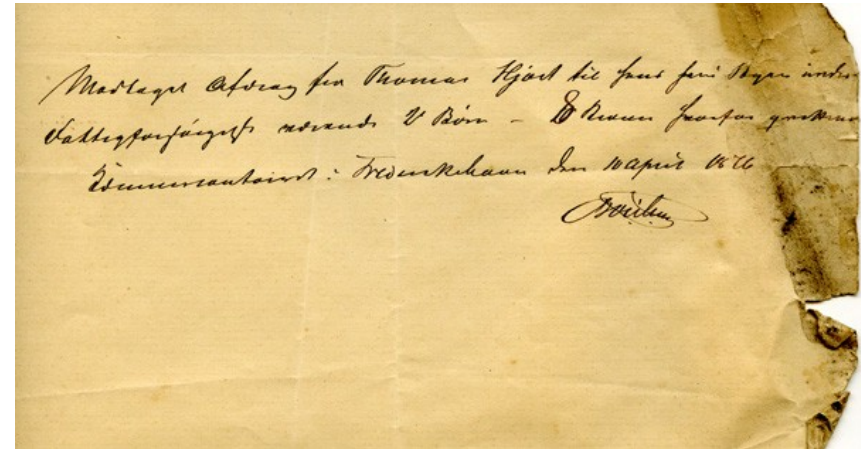 Modtaget Afdrag fra Thomas Hjort til hans her i Byen under
Fattigforsørgelse værende 2 Børn – 8 Kroner herfor qvitteres
Frederikshavn den 10 April 1876